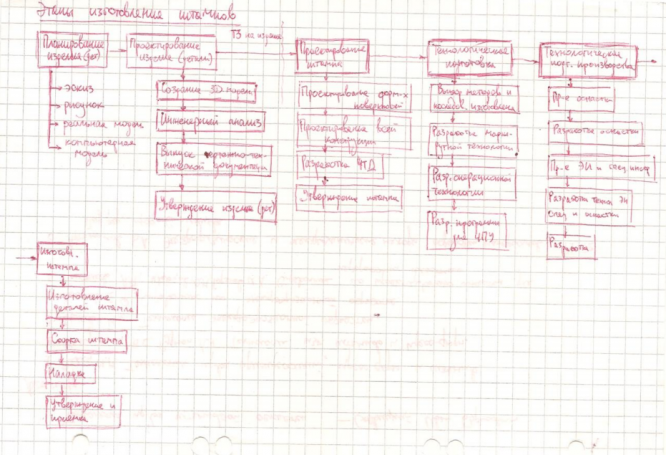 Этапы изготовления штампов
Планирование
изделия (дет)
эскиз
рисунок
реальная модель
компьютерная
модель
Проектирование
изделия (детали)
Создание 3D модели
Инженерный анализ
Выпуск
документации
Утверждение изделия (дет)
ТЗ на
Проектирование
штампа
Проектирование форм-х
поверхностей
Проектирование всей
конструкции
Разработка КТД
Утверждение штампа
Технологическая
подготовка
Выбор методов и
изготовления
Разработка марш-
рутной технологии
Разр. операционной
технологии
Разр. программы
для ЧПУ
Технологическая
подг. производства
Пр-е оснастки
Разработка оснастки
Пр-е ЭИ и спец. инстр
Разработка техн. ЭИ
и оснастки
Разработка
Изготовл.
штампа
Изготовление
деталей штампа
Сборка штампа
Наладка
Утверждение и
приемка